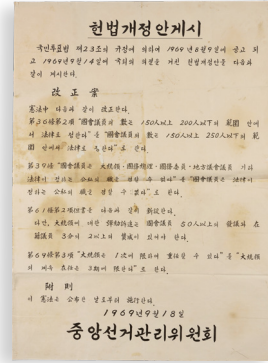 헌법개정안게시
국민투표법 제23조의 규정에 의하여 1969년8월9일에 공고 되
고 1969년9월14일에 국회의 의결을 거친 헌법개정안을 다음과
같이 게시한다.
改正案
憲法中 다음과 같이 改正한다.
제36條第2項 "國會議員의 數는 150人以上 200人以下의 範圍 안에
서 法律로 定한다"를 "國會議員의 數는 150人以上 250人以下의 範
圍 안에서 法律로 定한다"로 한다.
제39條 "國會議員은 大統領·國務總理·國務委員·地方議會議員 기타
法律이 정하는 公私의 職을 겸할 수 없다"를 "國會議員은 法律이
정하는 公私의 職을 겸할 수 없다"로 한다.
제61條第2項但書를 다음과 같이 新設한다.
다만, 大統領에 대한 彈劾訴追는 國會議員 50人以上의 發議와 在
籍議員 3分의 2以上의 贊成이 있어야 한다.
제69條第3項 "大統領은 1次에 限하여 重任할 수 있다"를 "大統領
의 계속 在任은 3期에 限한다"로 한다.
附則
이 憲法은 公布한 날로부터 施行한다.
1969年9月18日
중앙선거관리위원회